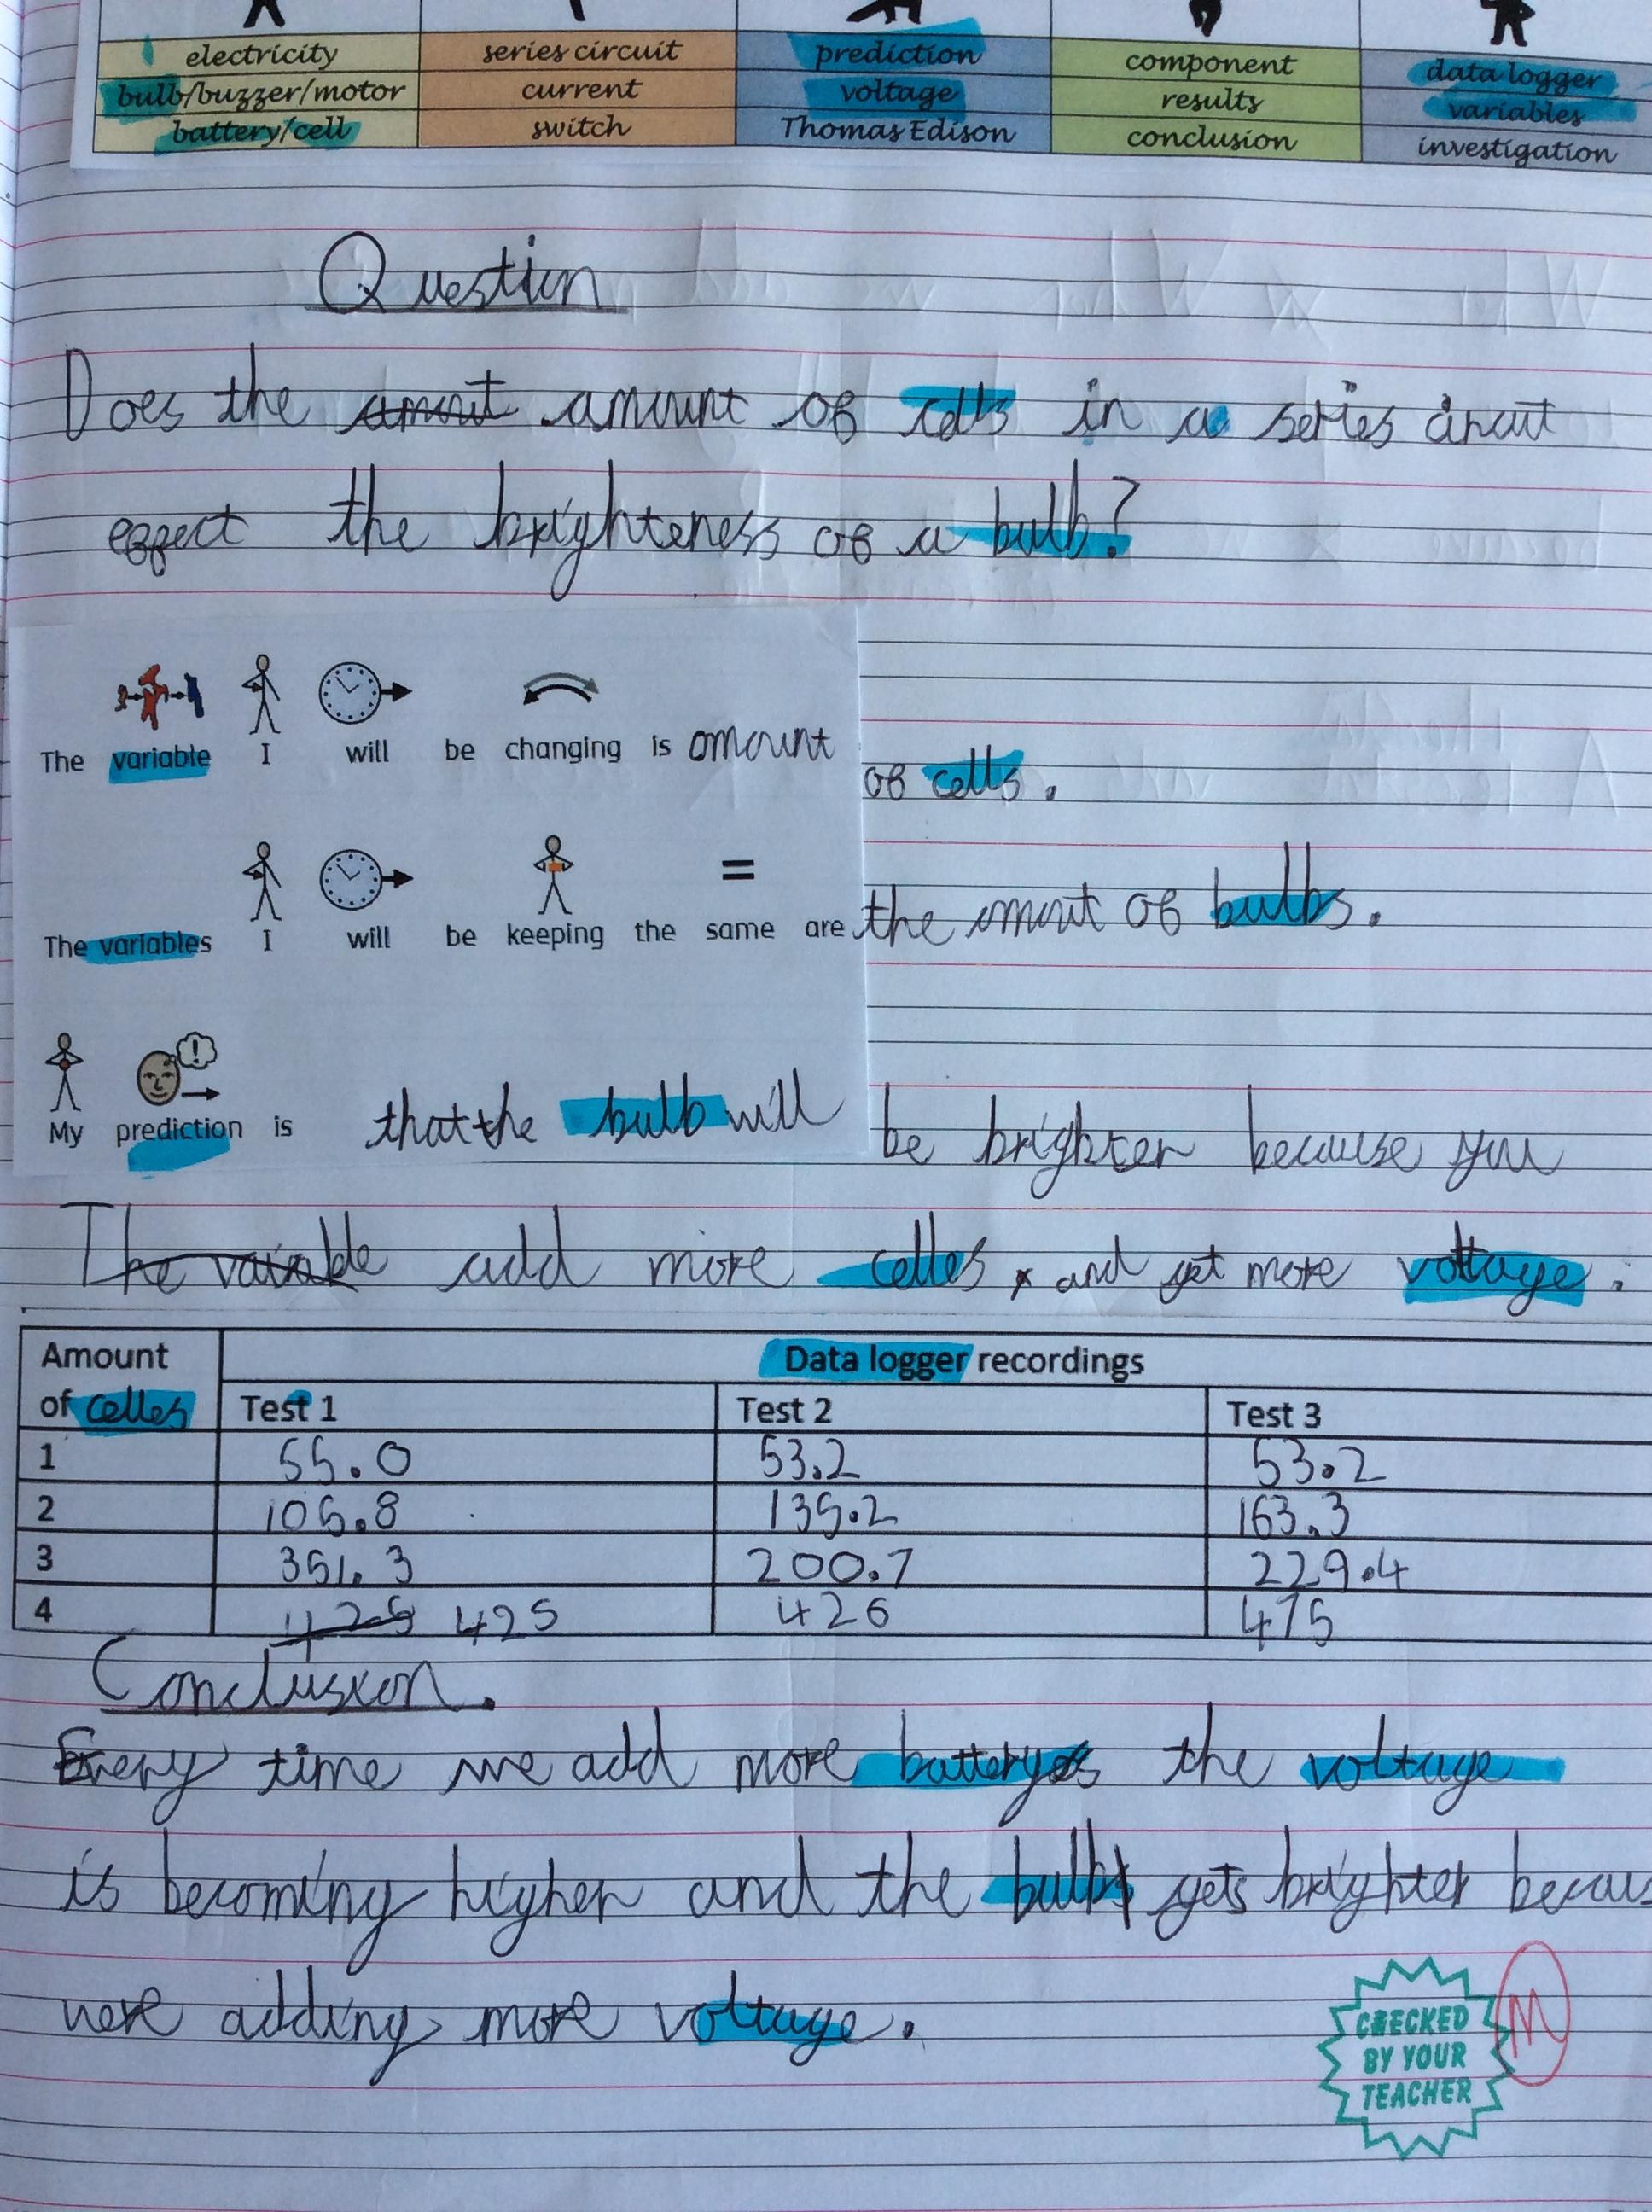 electricity series circuit prediction component data logger
bulb/buzzer/motor current voltage results variables
battery/cell switch Thomas Edison conclusion investigation
Question
Does the amount amount of cells in a series circuit
effect the brighteness of a bulb?
The variable I will be changing is amount
of cells.
The variables I will be keeping the same are the amount of bulbs.
My prediction is that the bulb will be brighter because you
The variable add more celles, and get more voltage.
Amount Data logger recordings
of celles Test 1 Test 2 Test 3
1 55.0 53.2 53.2
2 105.8 135.2 163.3
3 351.3 200.7 229.4
4 425 426 475
Conclusion.
Every time we add more batteryes the voltage
is becoming higher and the bulb gets brighter becau
were adding more voltage.
CHECKED
BY YOUR
TEACHER
M